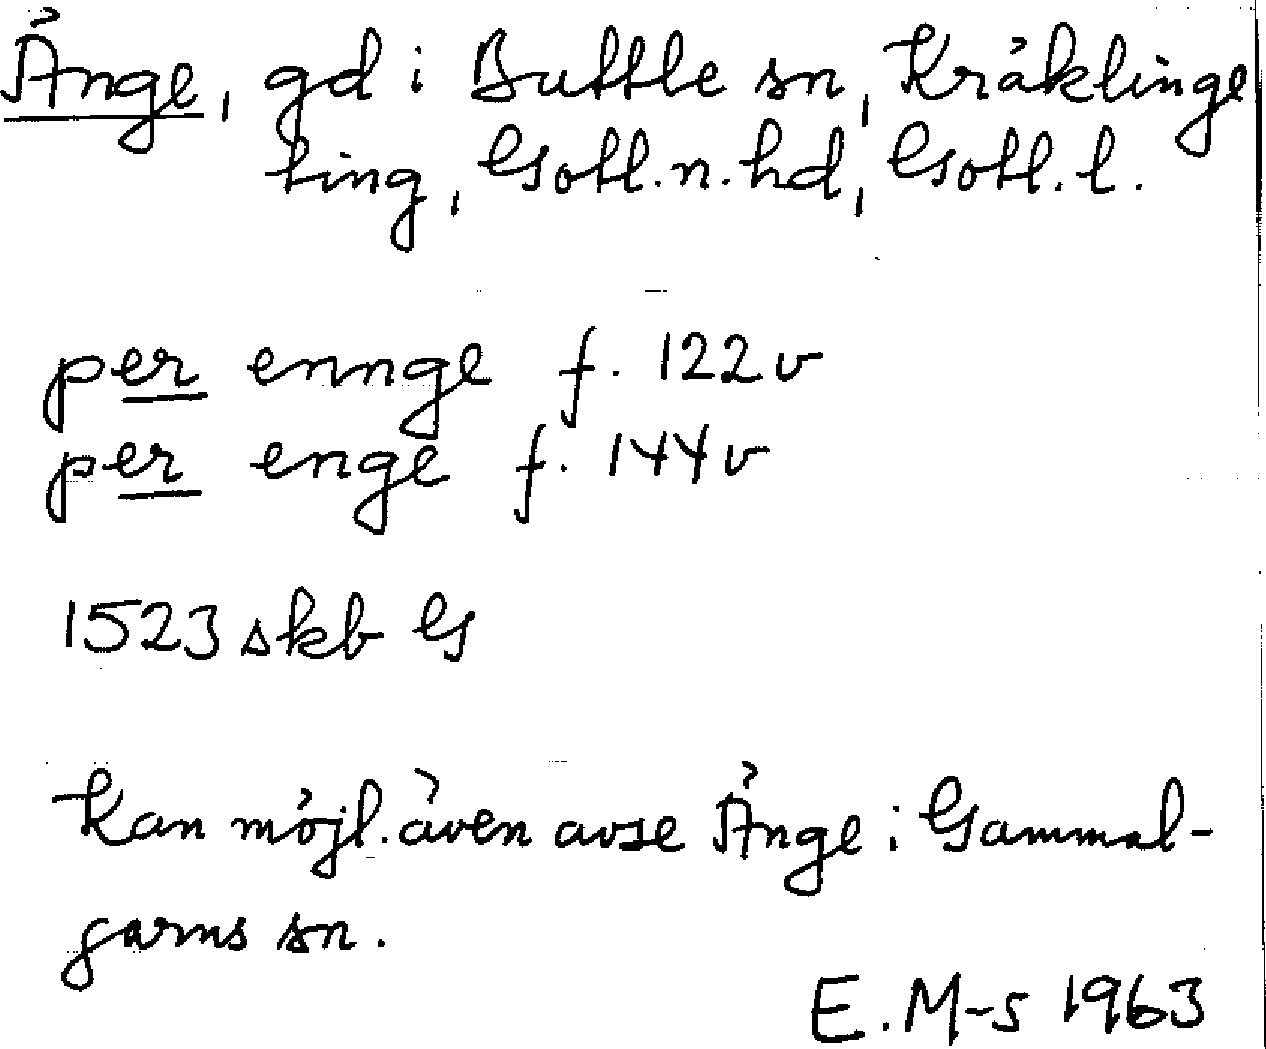 Änge, gd i Buttle sn, Kräklinge
ting, Gotl. n. hd, Gotl. l.
per ennge f. 122v
per enge f. 144v
1523 skb G
Kan möjl. även avse Änge i Gammal-
garns sn.
E. M-s 1963